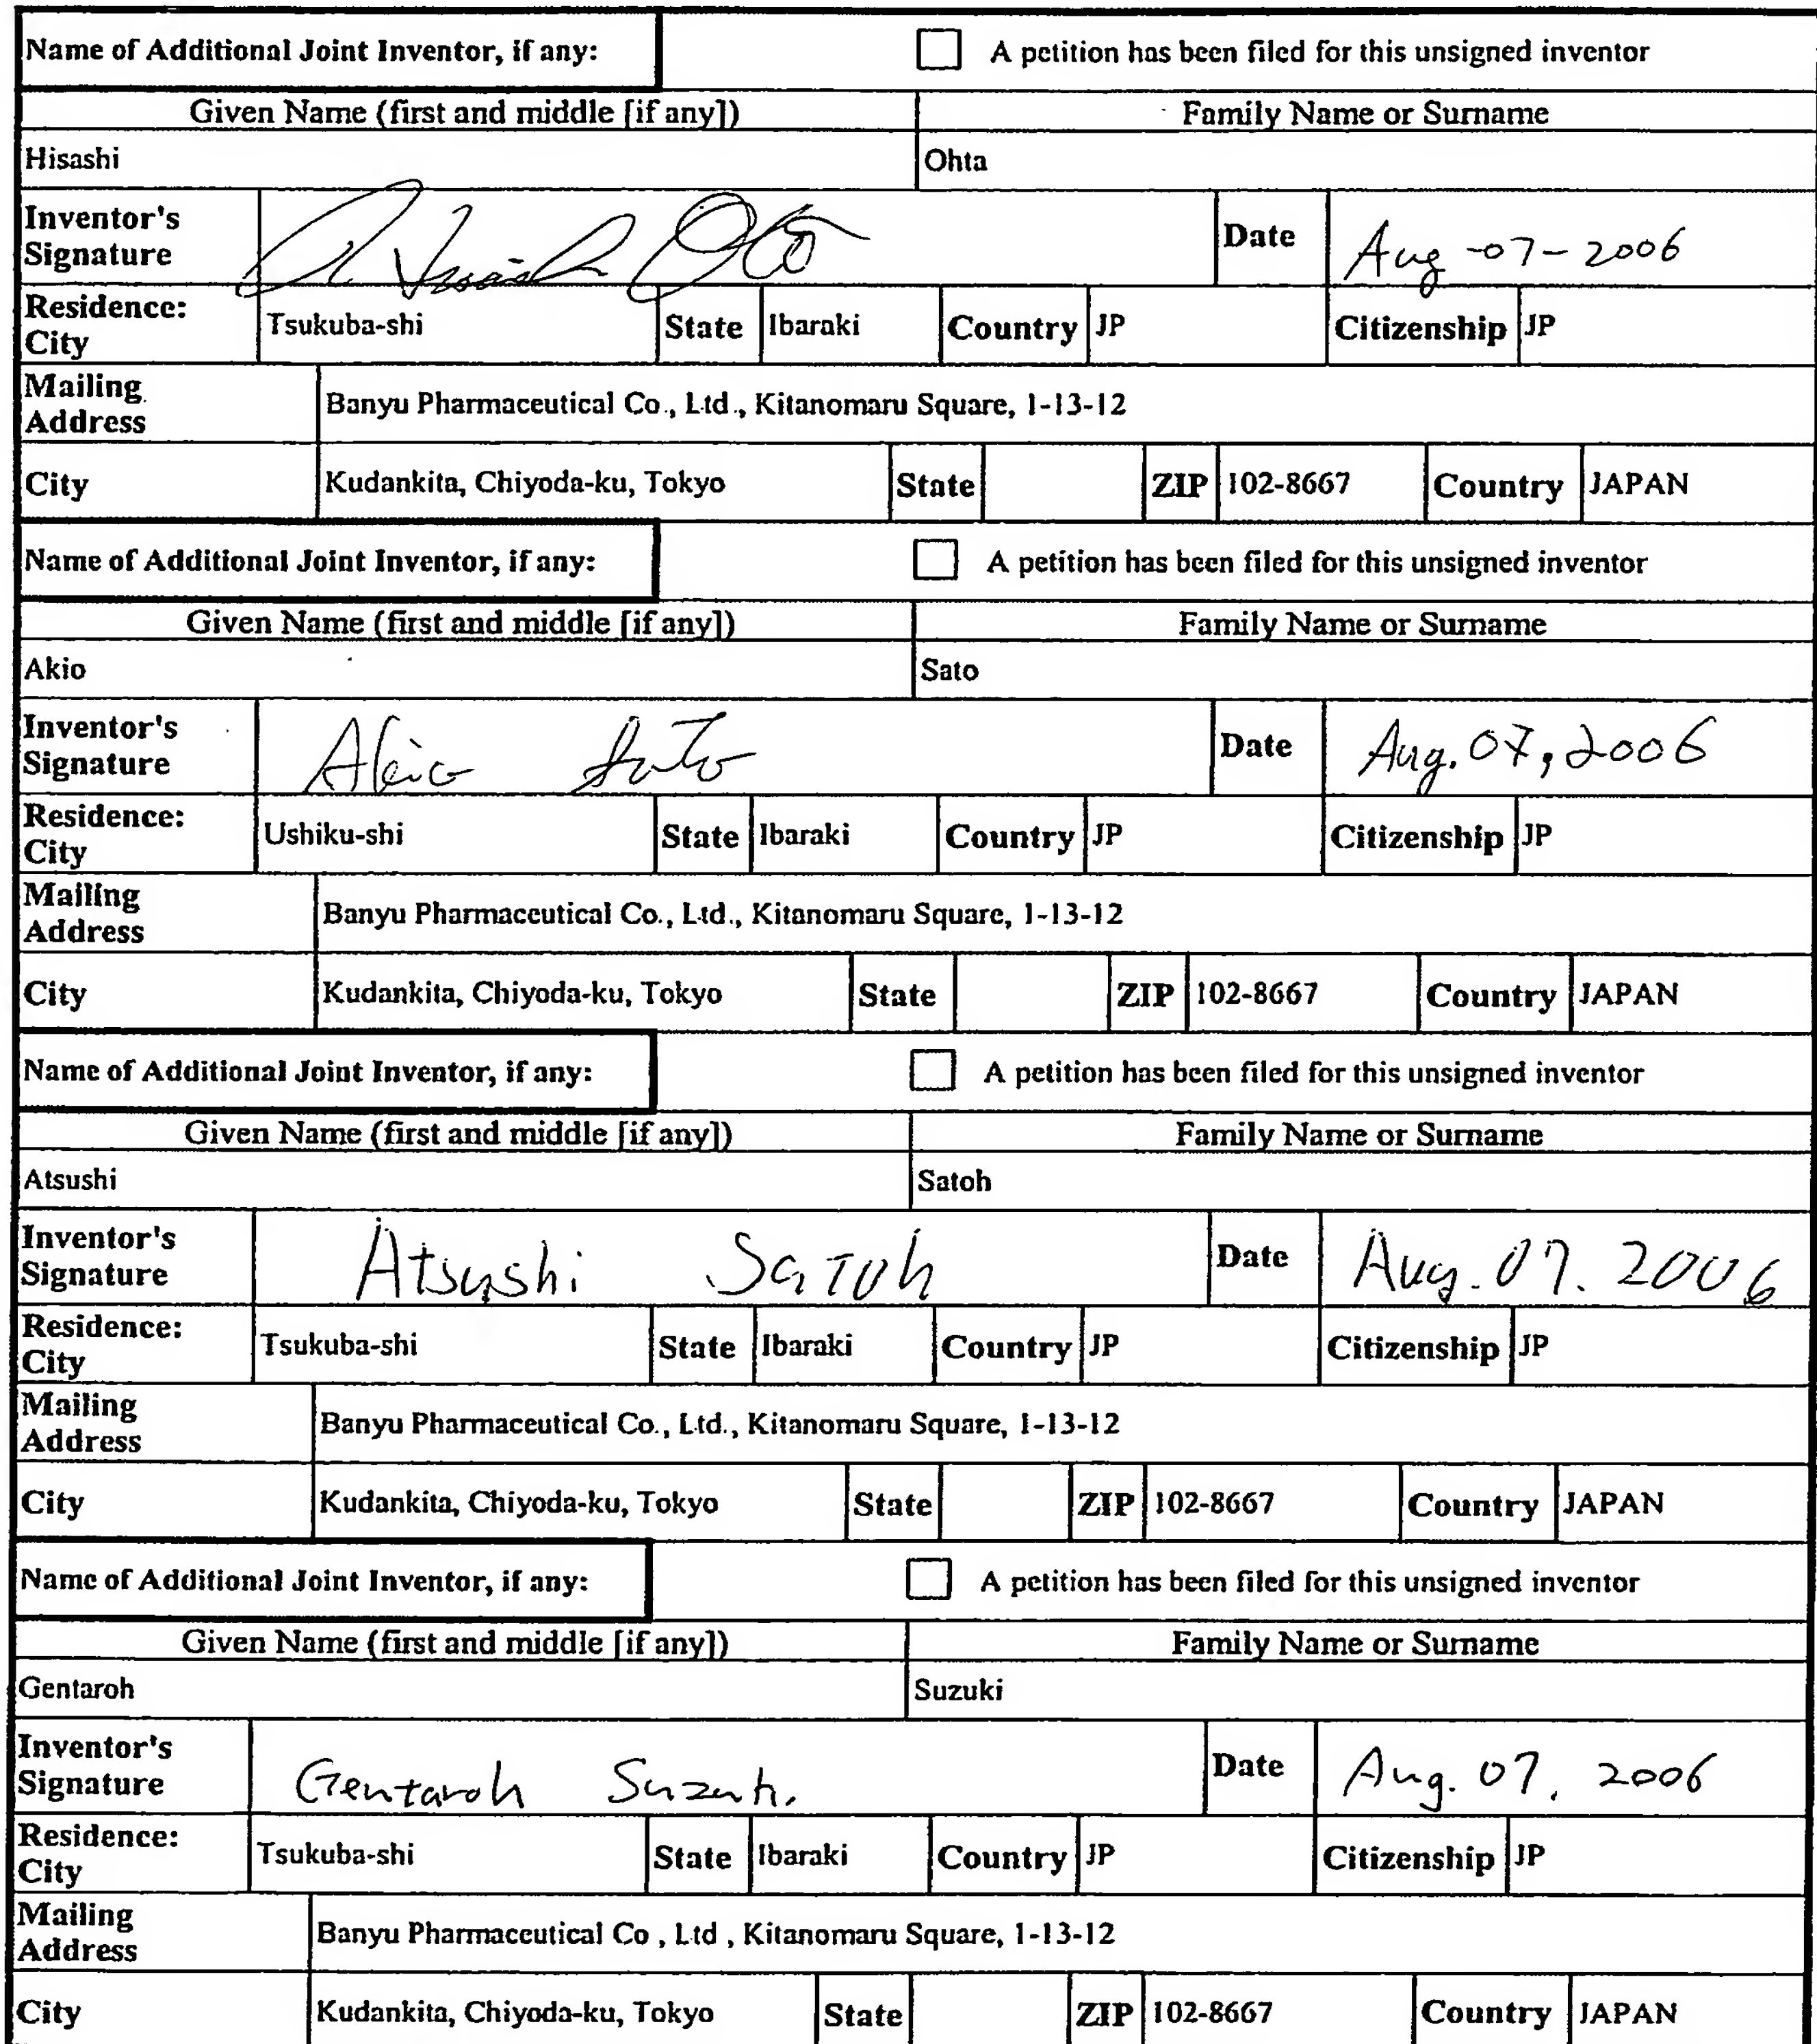 Name of Additional Joint Inventor, if any: A petition has been filed for this unsigned inventor
Given Name (first and middle [if any]) Family Name or Surname
Hisashi Ohta
Inventor's Signature Hisashi Ohta Date Aug-07-2006
Residence: City Tsukuba-shi State Ibaraki Country JP Citizenship JP
Mailing Address Banyu Pharmaceutical Co., Ltd., Kitanomaru Square, 1-13-12
City Kudankita, Chiyoda-ku, Tokyo State ZIP 102-8667 Country JAPAN
Name of Additional Joint Inventor, if any: A petition has been filed for this unsigned inventor
Given Name (first and middle [if any]) Family Name or Surname
Akio Sato
Inventor's Signature Akio Sato Date Aug. 07, 2006
Residence: City Ushiku-shi State Ibaraki Country JP Citizenship JP
Mailing Address Banyu Pharmaceutical Co., Ltd., Kitanomaru Square, 1-13-12
City Kudankita, Chiyoda-ku, Tokyo State ZIP 102-8667 Country JAPAN
Name of Additional Joint Inventor, if any: A petition has been filed for this unsigned inventor
Given Name (first and middle [if any]) Family Name or Surname
Atsushi Satoh
Inventor's Signature Atsushi Satoh Date Aug. 07. 2006
Residence: City Tsukuba-shi State Ibaraki Country JP Citizenship JP
Mailing Address Banyu Pharmaceutical Co., Ltd., Kitanomaru Square, 1-13-12
City Kudankita, Chiyoda-ku, Tokyo State ZIP 102-8667 Country JAPAN
Name of Additional Joint Inventor, if any: A petition has been filed for this unsigned inventor
Given Name (first and middle [if any]) Family Name or Surname
Gentaroh Suzuki
Inventor's Signature Gentaroh Suzuki Date Aug. 07, 2006
Residence: City Tsukuba-shi State Ibaraki Country JP Citizenship JP
Mailing Address Banyu Pharmaceutical Co , Ltd , Kitanomaru Square, 1-13-12
City Kudankita, Chiyoda-ku, Tokyo State ZIP 102-8667 Country JAPAN